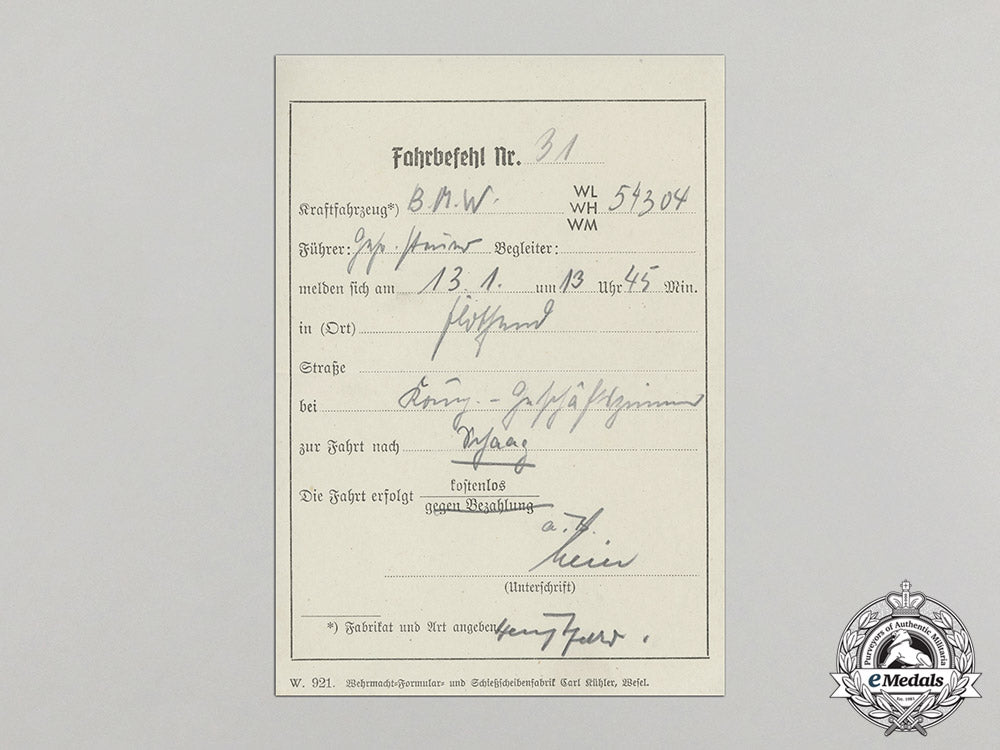 Fahrbefehl Nr. 31
Kraftfahrzeug*) B.M.W. WL
WH 54304
WM
Führer: Begleiter:
melden sich am 13.1. um 13 Uhr 45 Min.
in (Ort)
Straße
bei Komp. - Geschäftszimmer
zur Fahrt nach Schaag
Die Fahrt erfolgt kostenlos
gegen Bezahlung
a.B.
Meier
(Unterschrift)
*) Fabrikat und Art angeben
W. 921. Wehrmacht-Formular- und Schießscheibenfabrik Carl Kühler, Wesel.
Purveyors of Authentic Militaria
eMedals
Est. 1983